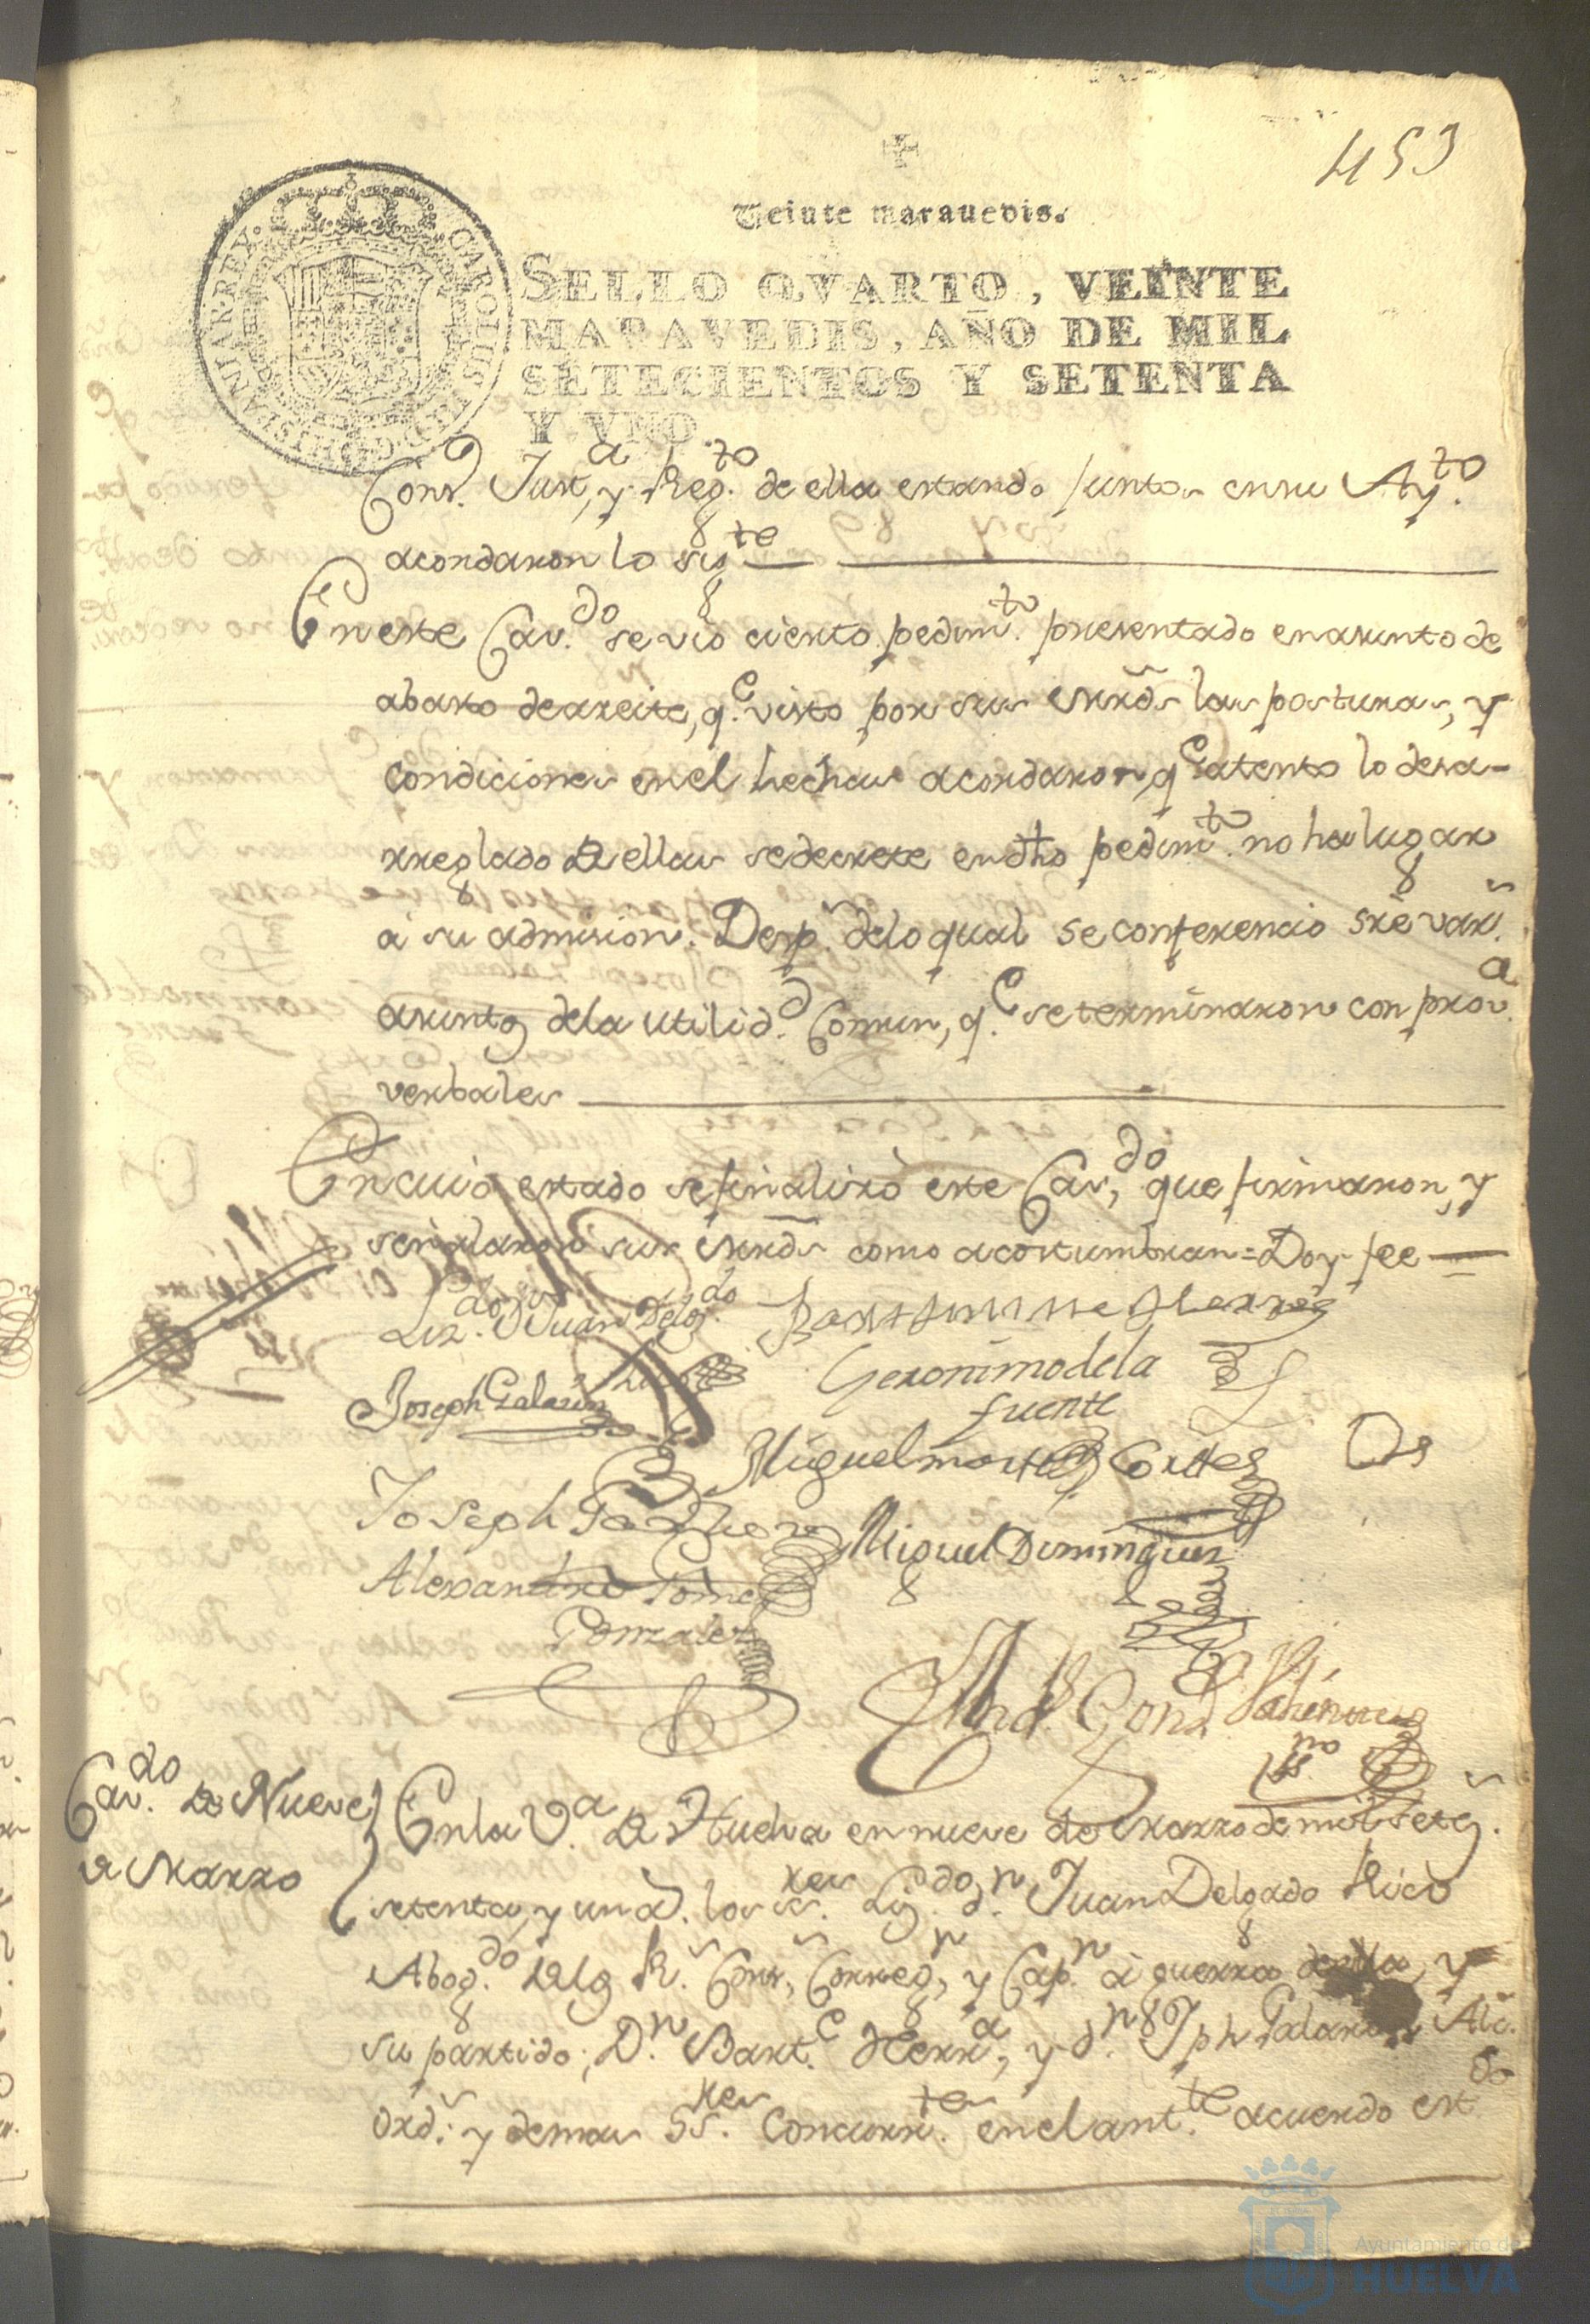 453
Veinte marauedis.
CAROLUS III D. G. HISPANIAR. REX.
SELLO QVARTO, VEINTE
MARAVEDIS, AÑO DE MIL
SETECIENTOS Y SETENTA
Y VNO.
Cons. Just.ª, y Reg.to de ella estando juntos en su Ay.to
acordaron lo sig.te
En este Cav.do se vio cierto pedim.to presentado en asunto de
abasto de aseite, q.e visto por sus Mrds las posturas, y
condiciones en el hechas acordaron q.e atento lo desa-
rreglado de ellas se decrete en dho pedim.to no ha lugar
a su admision. Desp.s delo qual se conferencio sre var.s
asuntos dela utilid.d Comun, q.e se terminaron con prov.a
verbales
En cuio estado se finalizò este Cav.do que firmaron, y
señalaron sus Mrds como acostumbran = Doy fee
Liz.do Dn Juan Delg.do
Rico
Bartholome Herrera
Joseph Galarza
Geronimo de la
fuente
Miguel Cortes
Joseph
Miguel Dominguez
Alexandro Gomez
Gonzalez
Cav.do de Nueve
de Marzo
En la V.a de Huelva en nueve de Marzo de mil setes.
setenta, y un a. los ss.res Liz.do d.n Juan Delgado Rico
Abog.do delos R.s Cons.s, Correg.r, y Cap.n à guerra de ella, y
su partido, D.n Bart.e Herr.a, y d.n Jph Galarza Alc.
ord.s y demas SS.res Concurr.tes en el ant.te acuerdo est.do
Ayuntamiento de
HUELVA